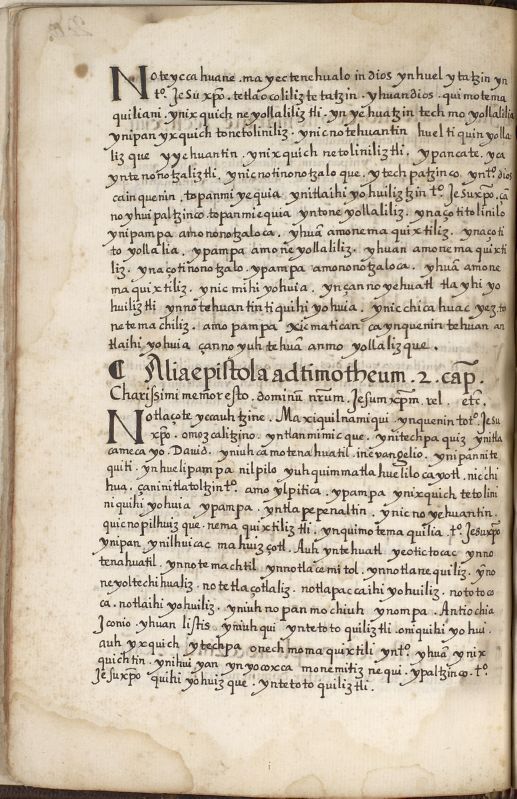 Noteyccahuane. ma yectenehualo in dios yn huel ytatzin yn
to. Jesu xpo. tetlaocoliliztetatzin. yhuan dios. qui mo tema
quiliani. ynixquich ne yollaliliztli. yn yehuatzin techmo yollalilia
ynipan yxquich tonetoliniliz. ynic no tehuantin huel ti quin yolla
liz que yyehuantin. ynixquich netoliniliztli. ypan cate. yca
yntenonotzaliztli. ynic no tinonotzalo que. ytech patzinco. ynto. dios
ca in quenin. topan miyequia ynitlaihiyohuiliztzin to. Jesuxpo. çā
no yhui paltzinco. topan miequia yntone yollaliliz. ynaço titolinilo
ynipampa amo nonotzaloca. yhuā amo nema quixtiliz. ynaço ti
to yollalia, ypampa amo ne yollaliliz. yhuan amo ne ma quixti
liz. ynaço tinonotzalo. ypampa amo nonotzaloca. yhuā amo ne
ma quixtiliz. ynic mihiyohuia. yn çan no yehuatl tlayhiyo
huiliztli ynno tehuantin tiquihiyohuia. ynic chicahuac yez. to
netemachiliz. amo pampa xicmatican ca yn quenin tehuan an
tlaihiyohuia çanno yuh tehuā anmo yollaliz que.
¶ Alia epistola ad timotheum. 2. cap.
Charissimi memor esto. dominū nrum. Jesum xpm. rel. etc.
Notlaçoteyccauhtzine. Ma xiquilnamiqui. ynquenin toto. Jesu
xpo. omozcalitzino. yntlan mimicque. ynitechpa quiz ynitla
camecayo. David. yniuh camo tenahuatil. in evangelio. ynipan nite
quiti. yn huel ipampa nilpilo yuhquimma tlahuelilocayotl. nicchi
hua, çan initlatoltzin to. amo ylpitica. ypampa ynixquich tetolini
niquihiyohuia ypampa. yntlapepenaltin. ynic no yehuantin.
quicnopilhuiz que. nema quixtiliztli. ynquimo tema quilia. to. Jesuxpo
ynipan. ynilhuicac mahuizçotl. Auh yntehuatl yeotictocac ynno
tenahuatil. ynnotemachtil ynnotlacemitol. ynnotlanequiliz. yno
neyoltechihualiz. notetlaçotlaliz. notlapaccaihiyohuiliz. nototo
ca. notlaihiyohuiliz. yniuh nopan mochiuh ynompa. Antiochia
Iconio. yhuan listis. yniuhqui yntetotoquiliztli. oniquihiyohui.
auh yxquich ytechpa onechmomaquixtili ynto. yhuā ynix
quichtin. ynihui yan yn yocoxca monemitiznequi. ypaltzinco. to.
Jesuxpo quihiyohuiz que. yntetotoquiliztli.